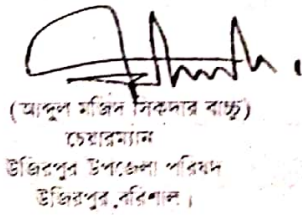 (আব্দুল মজিদ সিকদার বাচ্চু)
চেয়ারম্যান
উজিরপুর উপজেলা পরিষদ
উজিরপুর,বরিশাল।